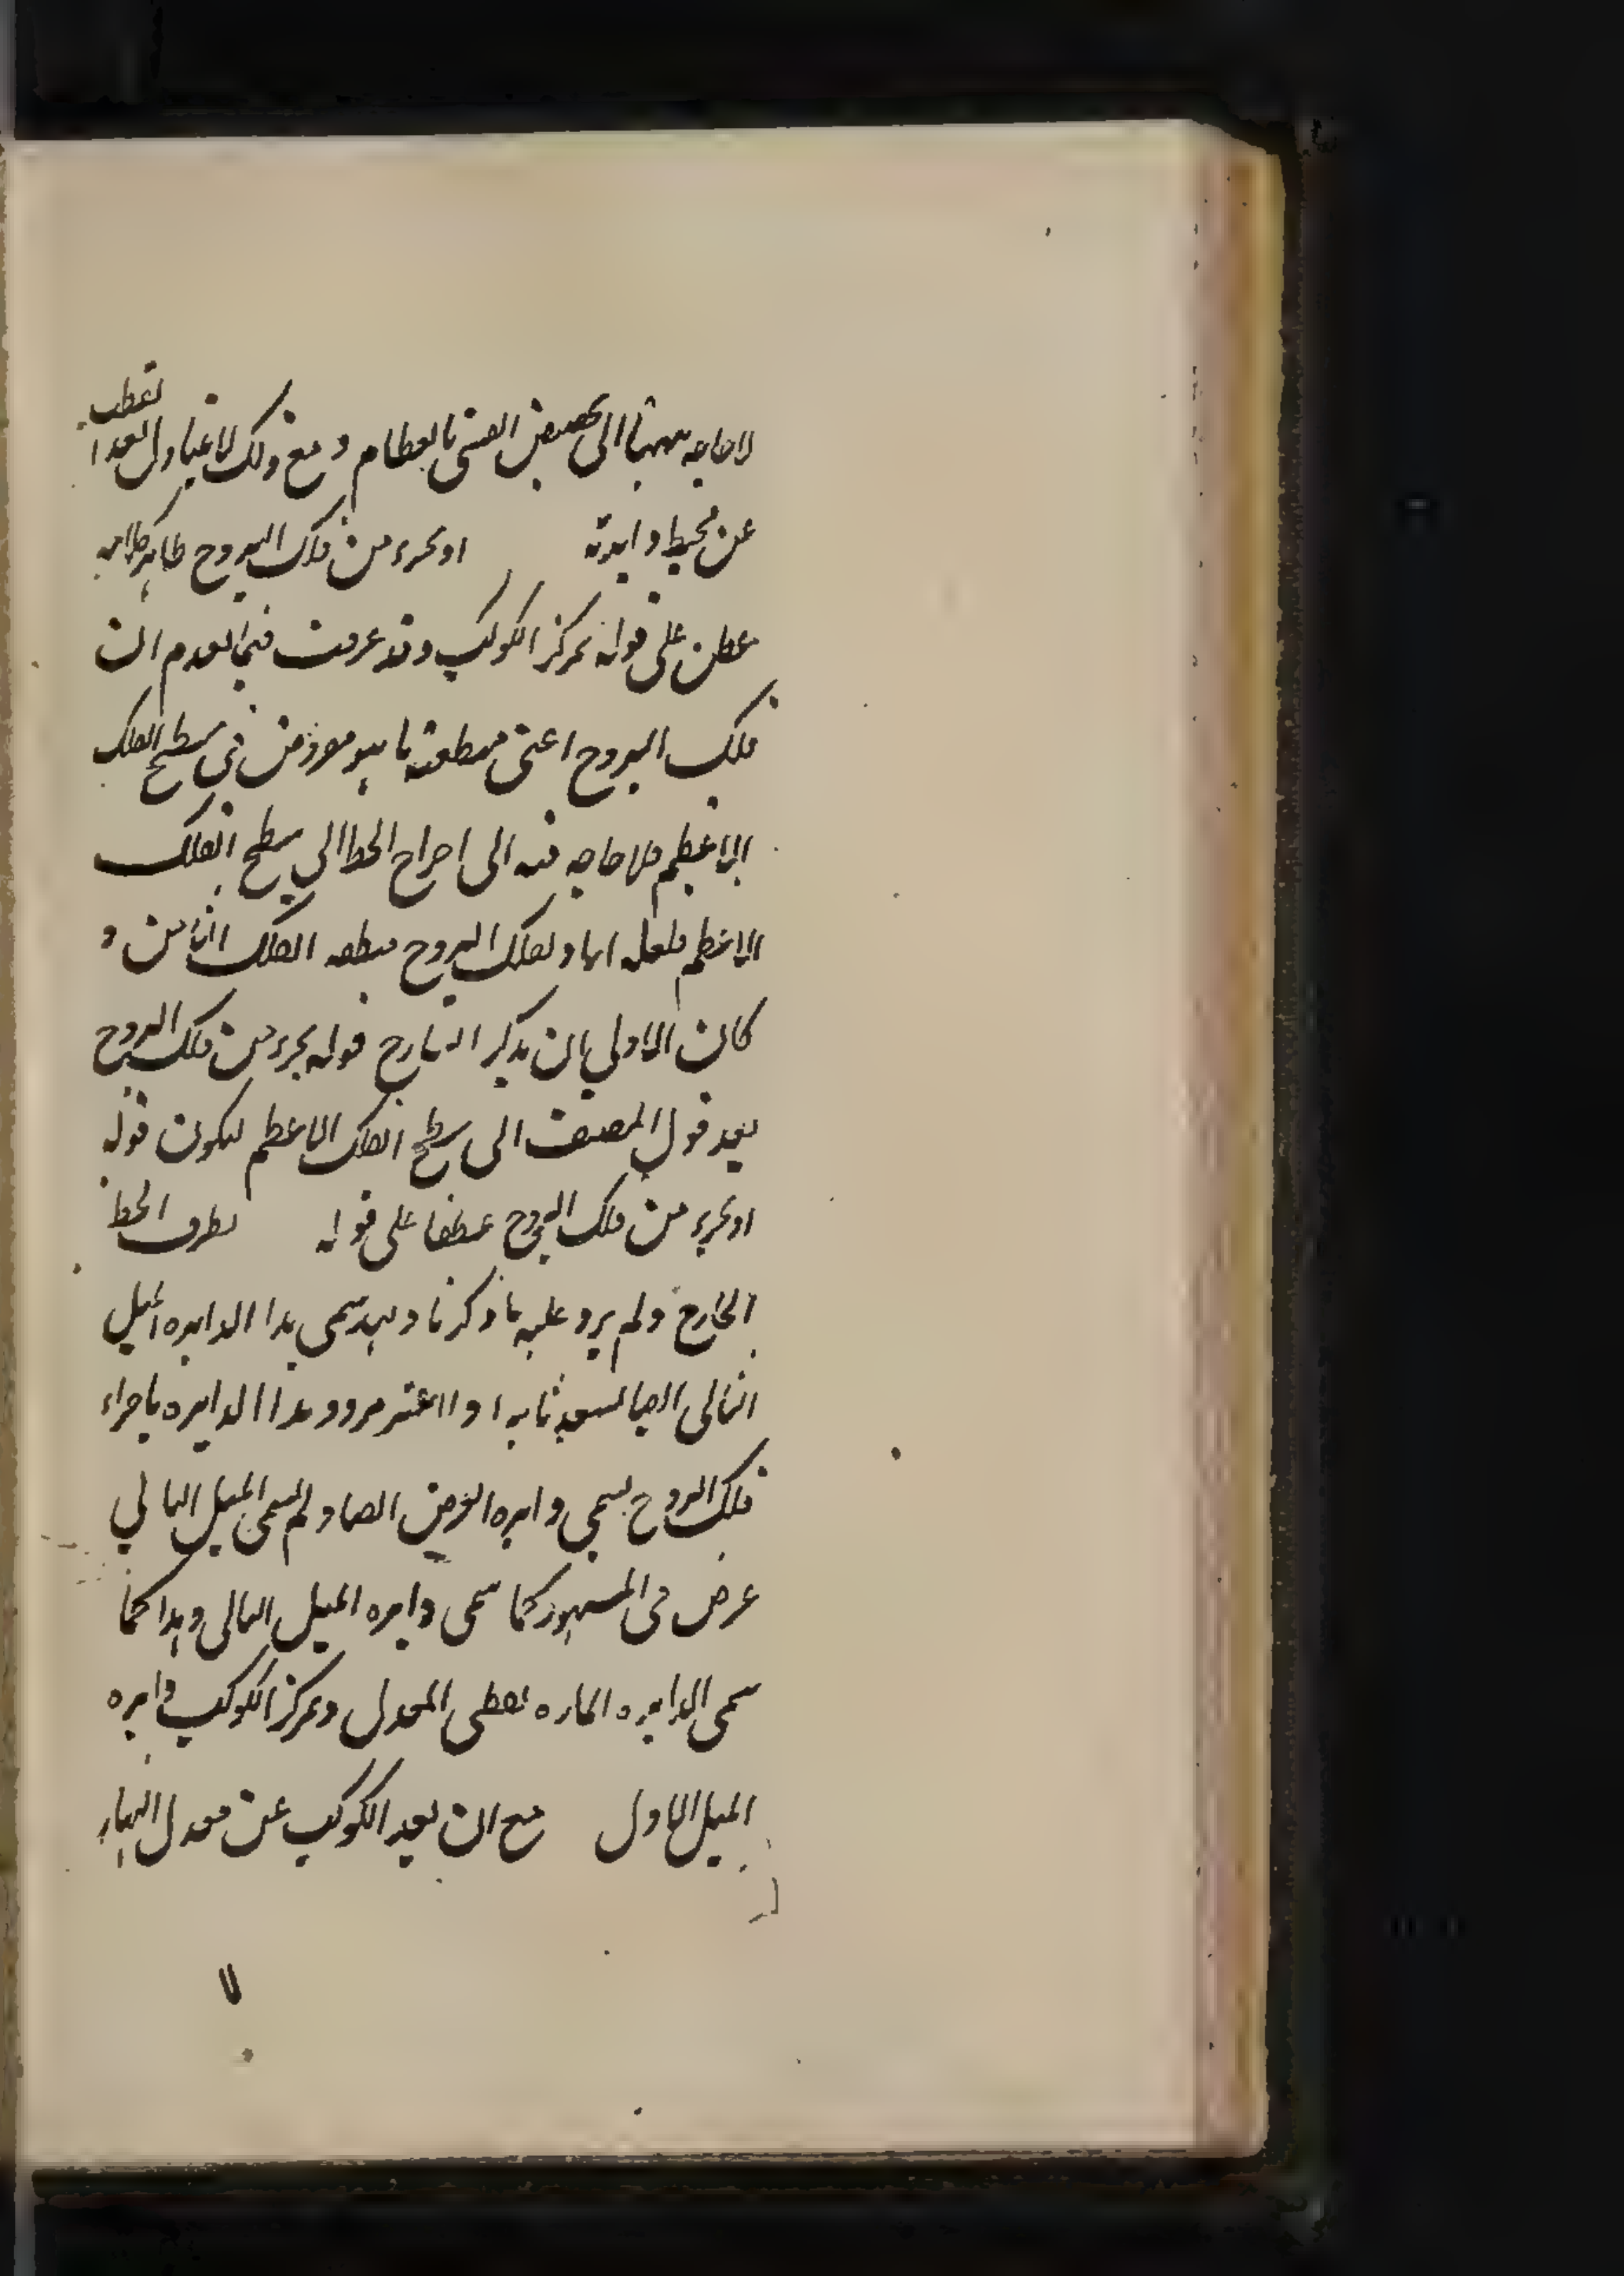 لقطب
لاحاجه ههنا الى تخصيص القسى بالعظام و مع ذلك لا غبار
عن محيط دايرته او بجزء من فلك البروج ظاهر كلامه
عطف على قوله بمركز الكوكب وقد عرفت فيما تقدم ان
فلك البروج اعنى منطقته ما هو مفروض فى سطح الفلك
الاعظم فلا حاجه فيه الى اخراج الخط الى سطح الفلك
الاعظم فلعله اراد بفلك البروج منطقه الفلك الثامن و
كان الاولى ان يذكر الشارح قوله بجزء من فلك البروج
بعد قول المصنف الى سطح الفلك الاعظم ليكون قوله
او بجزء من فلك البروج عطفا على قوله بطرف الخط
الخارج ولم يرد عليه ما ذكرنا و هذه يسمى هذا الدايره الميل
الثانى ايضا اذا اعتبر مرور هذا الدايره باجزاء
فلك البروج يسمى دايره العرض ايضا و لم يسمى الميل الثانى
عرض فى المشهور كما سمى دايره الميل الثانى و هذا كما
سمى الدايره الماره بقطبى المعدل و بمركز الكوكب دايره
الميل الاول مع ان بعد الكوكب عن معدل النهار
لا